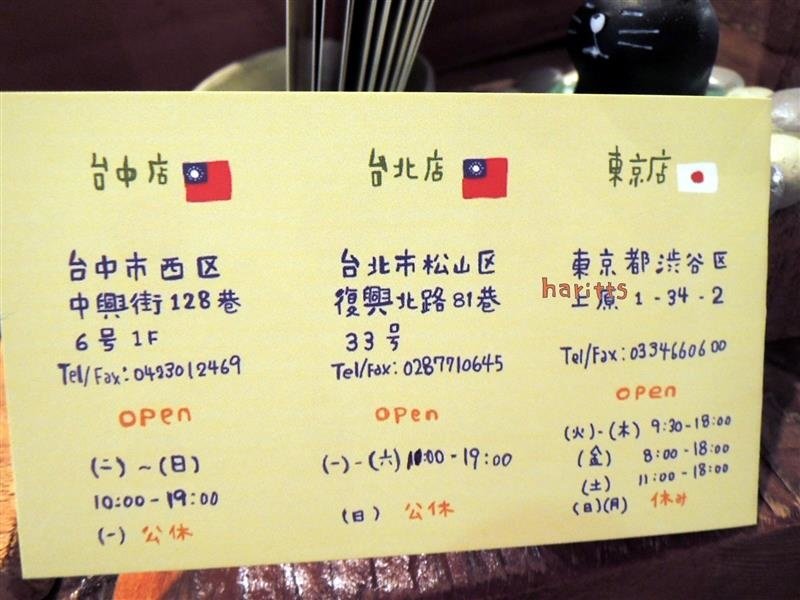 台中店
台中市西区
中興街128巷
6号 1F
Tel/Fax:0423012469
open
(二)~(日)
10:00-19:00
(一) 公休
台北店
台北市松山区
復興北路81巷
33号
Tel/Fax:0287710645
open
(一)-(六)10:00-19:00
(日) 公休
東京店
東京都渋谷区
上原 1-34-2
haritts
Tel/Fax:0334660600
open
(火)-(木) 9:30-18:00
(金) 8:00-18:00
(土) 11:00-18:00
(日)(月) 休み